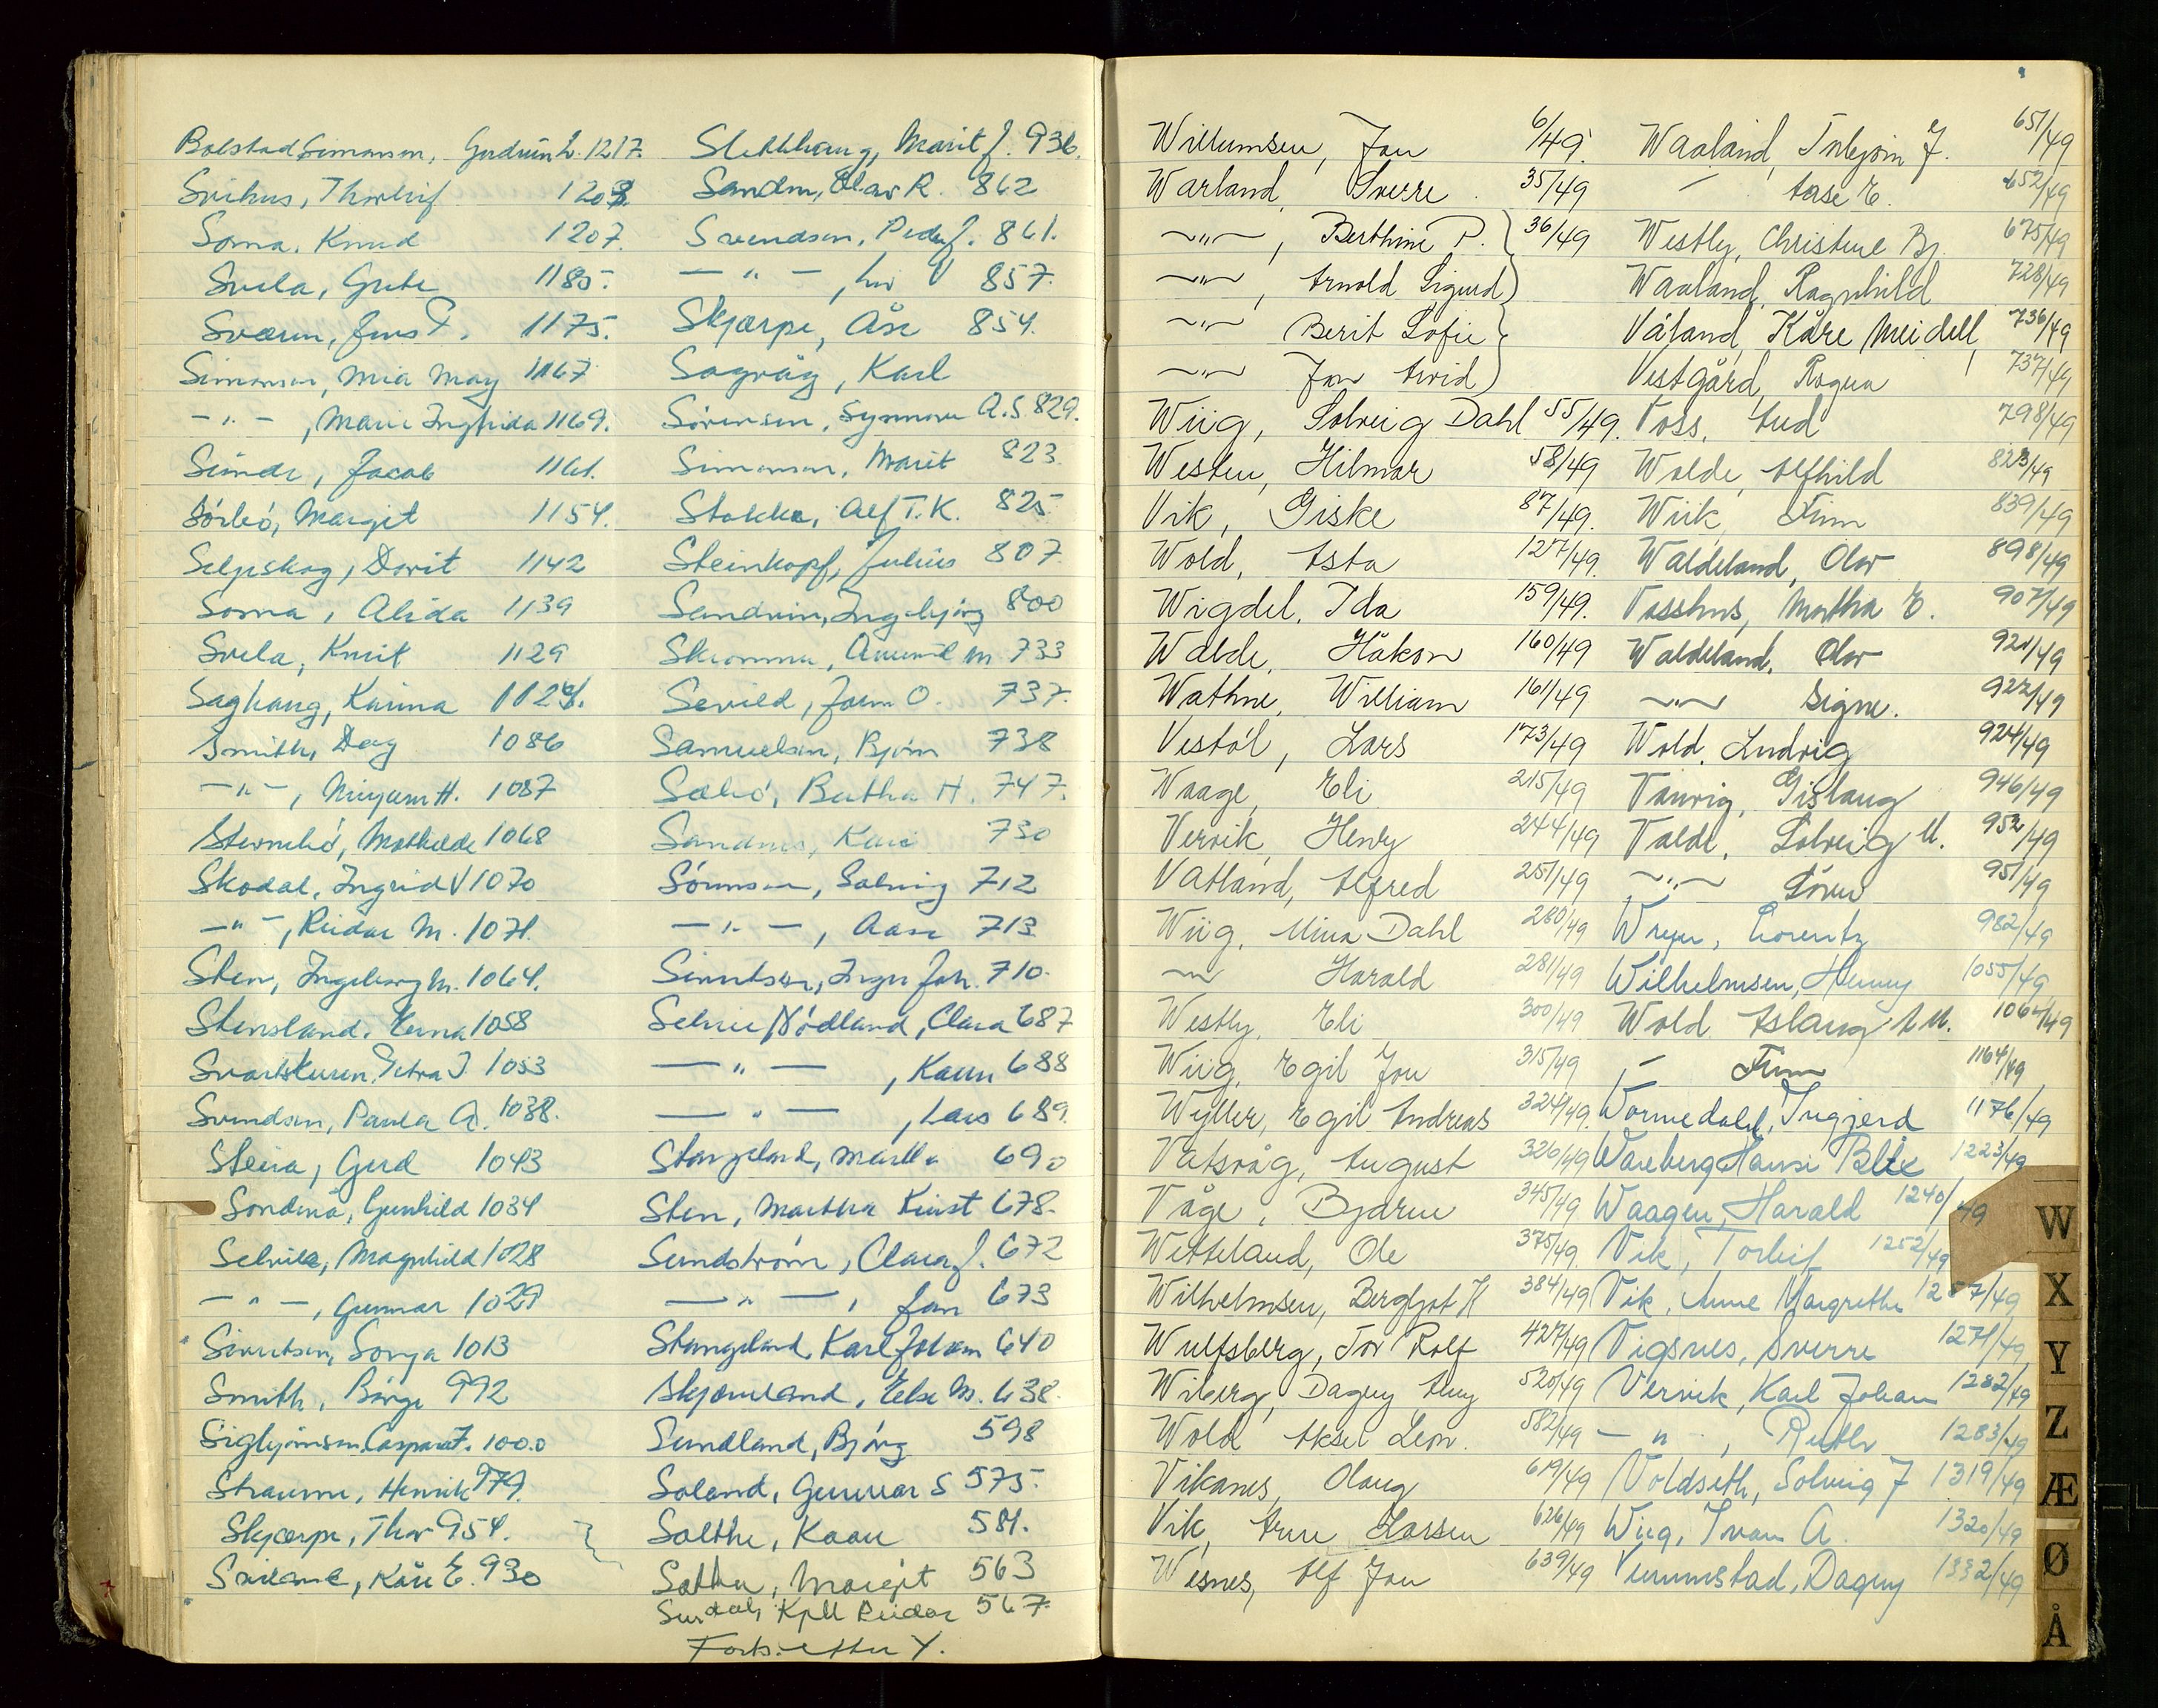 Bolstad Simonsen, Gudrun L. 1217.
Svihus, Thorleif 1208.
Soma, Knud 1207.
Svela, Grete 1185.
Sværen, Jens F. 1175.
Simonsen, Mia May 1167
-"-, Marie Ingfrida 1169.
Sunde, Jacob 1161.
Sörbö, Margit 1154.
Seljeskog, Dorit 1142
Soma, Alida 1139
Svela, Knut 1129
Saghaug, Karina 1124.
Smith, Dag 1086
-"-, Mirjam H. 1087
Sternebö, Mathilde 1068
Skodal, Ingrid V 1070
-"-, Reidar M. 1071.
Sten, Ingeborg M. 1064.
Stensland, Erna 1058
Svartskuren, Petra J. 1053
Svendsen, Paula A. 1038.
Steira, Gerd 1043
Sondenå, Gunhild 1034
Selvik, Magnhild 1028
-"-, Gunnar 1029
Sivertsen, Sonja 1013
Smith, Börge 992
Sigbjörnsen, Caspara F. 1000
Straume, Henrik 979.
Skjærpe, Thor 954.
Kåre E. 930
Slettehaug, Marit J. 936.
Olav R. 862
Svendsen, Peder J. 861.
-"-, Liv V 857.
Skjærpe, Åse 854.
Sagvåg, Karl
Sörensen, Synnøve A.S. 829.
Simonsen, Marit 823.
Stokke, Alf T.K. 825
Steinkopf, Julius 807.
Sandvin, Ingebjörg 800
M 733
O. 737.
Samuelsen, Björn 738
Sæbö, Bertha H. 747.
Sandnes, Kari 730
Sörensen, Solveig 712
-"-, Aase 713
Sivertsen, Inger Joh. 710.
Selvie Nödland, Clara 687
-"-, Karen 688
-"-, Lars 689.
Stangeland, Martha 690
Sten, Martha Kvist 678.
Sundström, Clara J. 672
-"-, Jan 673
Stangeland, Karl Johan 640
Skjæveland, Else M. 638.
Sundland, Björg 598
Soland, Gunnar S 575.
Salthe, Kaare 581.
Salthe, Margit 563
Surdal, Kjell Reidar 567.
Forts. etter Y.
Willumsen, Jon 6/49.
Warland, Sverre 35/49
-"-, Berthine P. 36/49
-"-, Arnold Sigurd
-"- Berit Sofie
-"- Jon Arvid
Wiig, Solveig Dahl 55/49.
Westen, Hilmar 58/49
Vik, Giske 87/49.
Wold, Asta 127/49.
Wigdel, Ida 159/49.
Walde, Håkon 160/49
Wathne, William 161/49
Vestöl, Lars 173/49
Waage, Eli 215/49
Vervik, Henry 244/49
Vatland, Alfred 251/49
Wiig, Mina Dahl 280/49
-"- Harald 281/49
Westly, Eli 300/49
Wiig, Egil Jon 315/49
Wyller, Egil Andreas 324/49.
Vatsvåg, August 326/49
Våge, Bjarne 345/49
Wetteland, Ole 375/49.
Wilhelmsen, Bergljot H 384/49
Wulfsberg, Tor Rolf 427/49
Wiberg, Dagny Amy 520/49
Wold Aksel Leon. 582/49
Vikanes, Olaug 619/49
Vik, Arne Larsen 626/49
Wesnes, Alf Jon 639/49
Waaland, Torbjörn J. 651/49
-"- Aase E. 652/49
Westly, Christine Bj. 675/49
Waaland, Ragnhild 728/49
Våland, Kåre Meidell, 736/49
Vestgård, Ragna 737/49
Voss, Aud 798/49
Wolde, Alfhild 823/49
Wiik, Finn 839/49
Waldeland, Olav 898/49
Vasshus, Martha E. 907/49
Waldeland, Olav 921/49
-"- Signe. 922/49
Wold, Ludvig 924/49
Gislaug 946/49
Valde, Solveig M. 952/49
-"- Sören 951/49
Weyer, Lorentz 982/49
Wilhelmsen, Henny 1055/49
Wold, Aslaug A.M. 1064/49
-"- Finn 1164/49
Wormedahl, Ingjerd 1176/49
Wareberg, Hansi Blix 1223/49
Waagen, Harald 1240/49
Vik, Torleif 1252/49
Vik, Anne Margrethe 1257/49
Vigsnes, Sverre 1271/49
Vervik, Karl Johan 1282/49
-"-, Ruth 1283/49
Voldseth, Solveig J 1319/49
Wiig, Ivar A. 1320/49
Vemmestad, Dagny 1332/49
W
X
Y
Z
Æ
Ø
Å